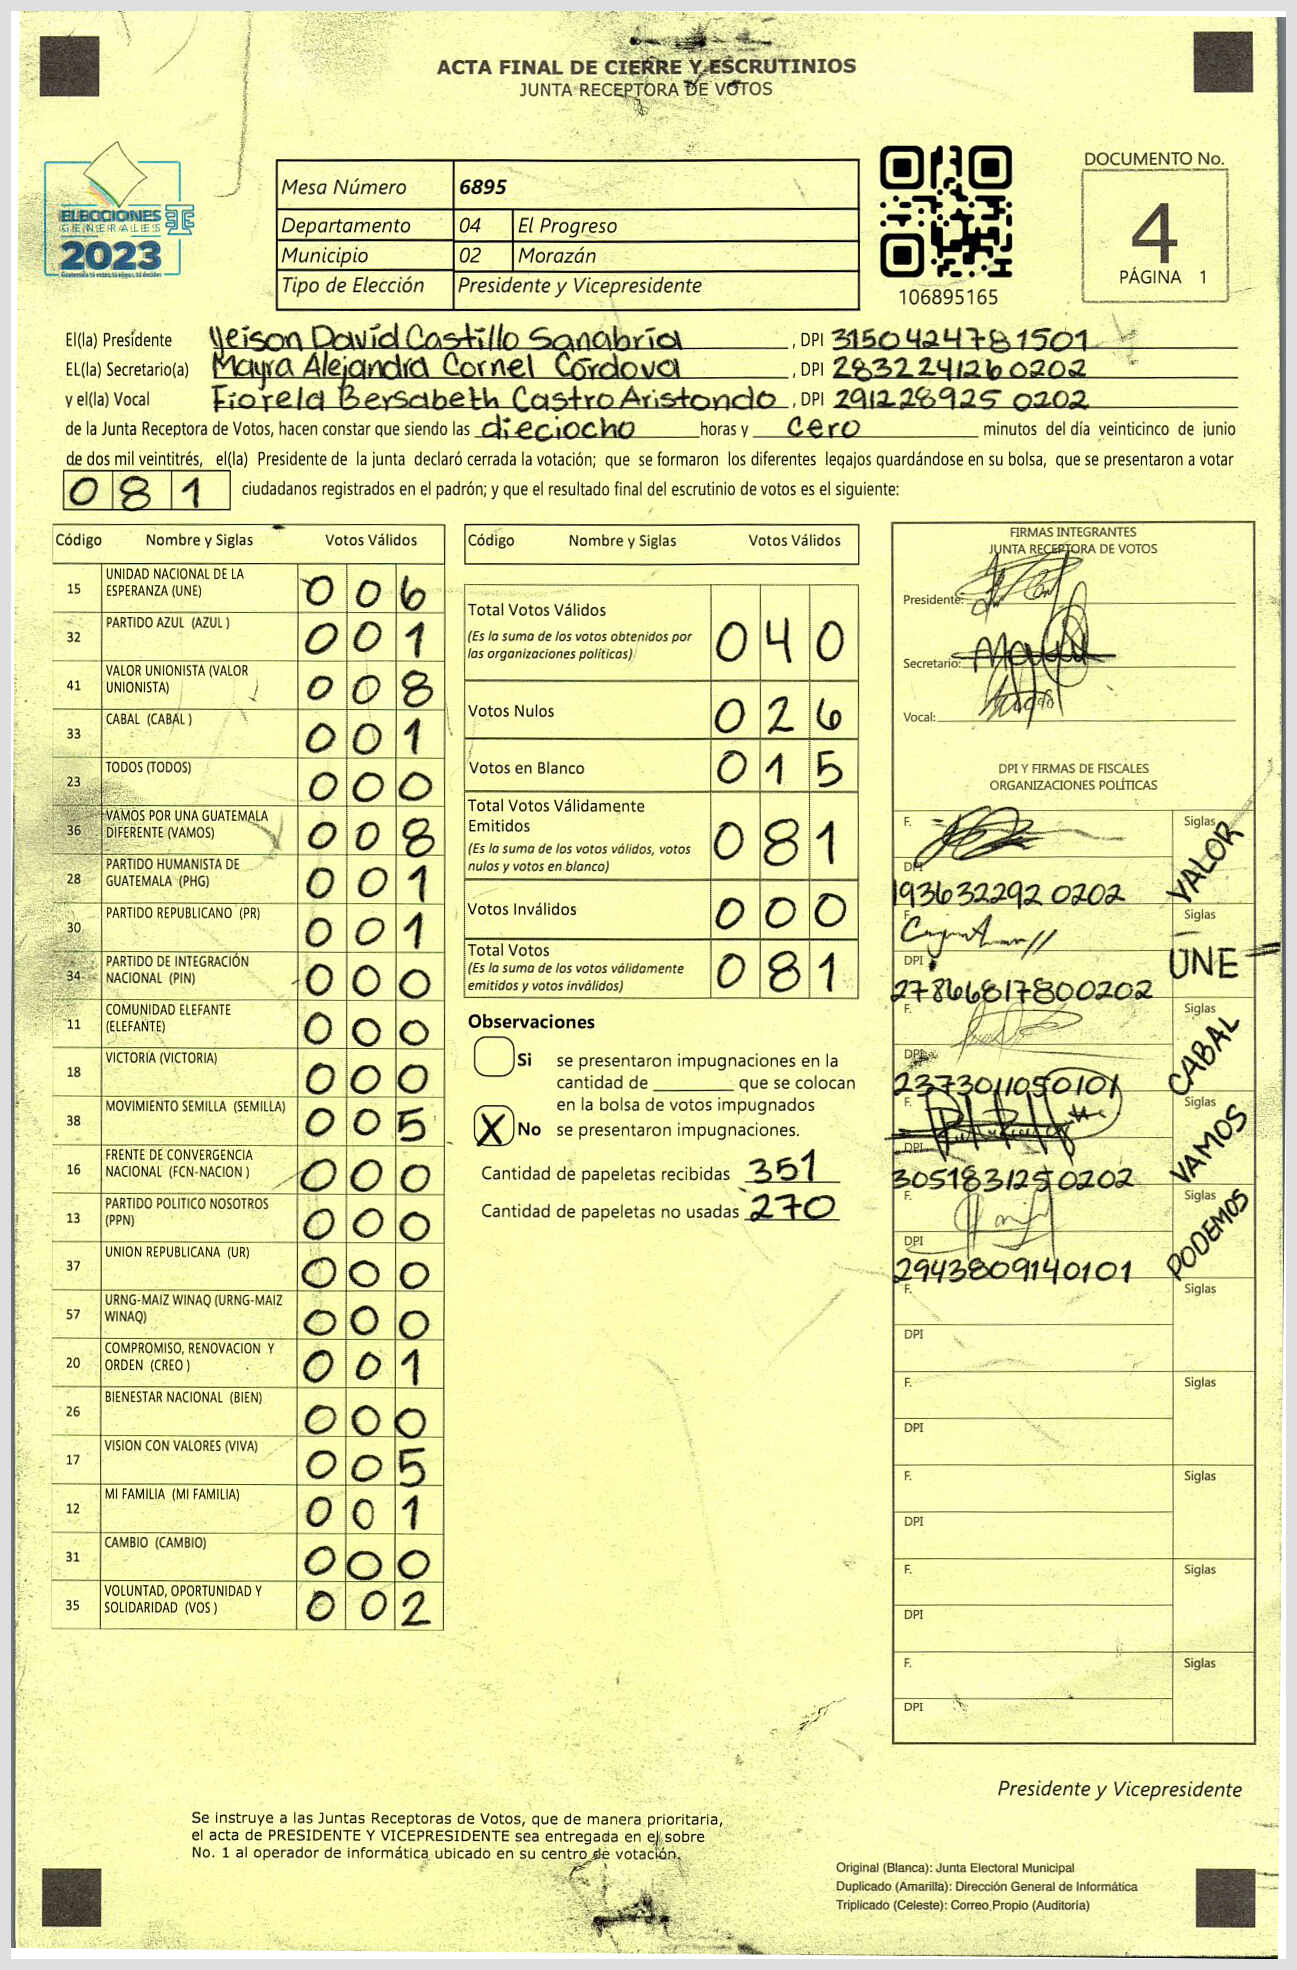 ACTA FINAL DE CIERRE Y ESCRUTINIOS
JUNTA RECEPTORA DE VOTOS
ELECCIONES
GENERALES
2023
Mesa Número 6895
Departamento 04 El Progreso
Municipio 02 Morazán
Tipo de Elección Presidente y Vicepresidente
106895165
DOCUMENTO No.
4
PÁGINA 1
El(la) Presidente Yeison David Castillo Sanabria, DPI 3150424781501
EL(la) Secretario(a) Mayra Alejandra Cornel Córdova, DPI 2832241260202
y el(la) Vocal Fiorela Bersabeth Castro Aristondo, DPI 291228925 0202
de la Junta Receptora de Votos, hacen constar que siendo las dieciocho horas y cero minutos del día veinticinco de junio
de dos mil veintitrés, el(la) Presidente de la junta declaró cerrada la votación; que se formaron los diferentes legajos guardándose en su bolsa, que se presentaron a votar
081 ciudadanos registrados en el padrón; y que el resultado final del escrutinio de votos es el siguiente:
Código Nombre y Siglas Votos Válidos
15 UNIDAD NACIONAL DE LA ESPERANZA (UNE) 006
32 PARTIDO AZUL (AZUL ) 001
41 VALOR UNIONISTA (VALOR UNIONISTA) 008
33 CABAL (CABAL ) 001
23 TODOS (TODOS) 000
36 VAMOS POR UNA GUATEMALA DIFERENTE (VAMOS) 008
28 PARTIDO HUMANISTA DE GUATEMALA (PHG) 001
30 PARTIDO REPUBLICANO (PR) 001
34 PARTIDO DE INTEGRACIÓN NACIONAL (PIN) 000
11 COMUNIDAD ELEFANTE (ELEFANTE) 000
18 VICTORIA (VICTORIA) 000
38 MOVIMIENTO SEMILLA (SEMILLA) 005
16 FRENTE DE CONVERGENCIA NACIONAL (FCN-NACION ) 000
13 PARTIDO POLITICO NOSOTROS (PPN) 000
37 UNION REPUBLICANA (UR) 000
57 URNG-MAIZ WINAQ (URNG-MAIZ WINAQ) 000
20 COMPROMISO, RENOVACION Y ORDEN (CREO ) 001
26 BIENESTAR NACIONAL (BIEN) 000
17 VISION CON VALORES (VIVA) 005
12 MI FAMILIA (MI FAMILIA) 001
31 CAMBIO (CAMBIO) 000
35 VOLUNTAD, OPORTUNIDAD Y SOLIDARIDAD (VOS ) 002
Código Nombre y Siglas Votos Válidos
Total Votos Válidos 040
(Es la suma de los votos obtenidos por
las organizaciones políticas)
Votos Nulos 026
Votos en Blanco 015
Total Votos Válidamente
Emitidos 081
(Es la suma de los votos válidos, votos
nulos y votos en blanco)
Votos Inválidos 000
Total Votos 081
(Es la suma de los votos válidamente
emitidos y votos inválidos)
Observaciones
Si se presentaron impugnaciones en la
cantidad de ________ que se colocan
en la bolsa de votos impugnados
X No se presentaron impugnaciones.
Cantidad de papeletas recibidas 351
Cantidad de papeletas no usadas 270
FIRMAS INTEGRANTES
JUNTA RECEPTORA DE VOTOS
Presidente:
Secretario:
Vocal:
DPI Y FIRMAS DE FISCALES
ORGANIZACIONES POLÍTICAS
F. Siglas VALOR
DPI 193632292 0202
F. Siglas UNE
DPI 2786681780 0202
F. Siglas CABAL
DPI 2373011050101
F. Siglas VAMOS
DPI 305183125 0202
F. Siglas PODEMOS
DPI 2943809140101
F. Siglas
DPI
F. Siglas
DPI
F. Siglas
DPI
F. Siglas
DPI
F. Siglas
DPI
Presidente y Vicepresidente
Se instruye a las Juntas Receptoras de Votos, que de manera prioritaria,
el acta de PRESIDENTE Y VICEPRESIDENTE sea entregada en el sobre
No. 1 al operador de informática ubicado en su centro de votación.
Original (Blanca): Junta Electoral Municipal
Duplicado (Amarilla): Dirección General de Informática
Triplicado (Celeste): Correo Propio (Auditoría)